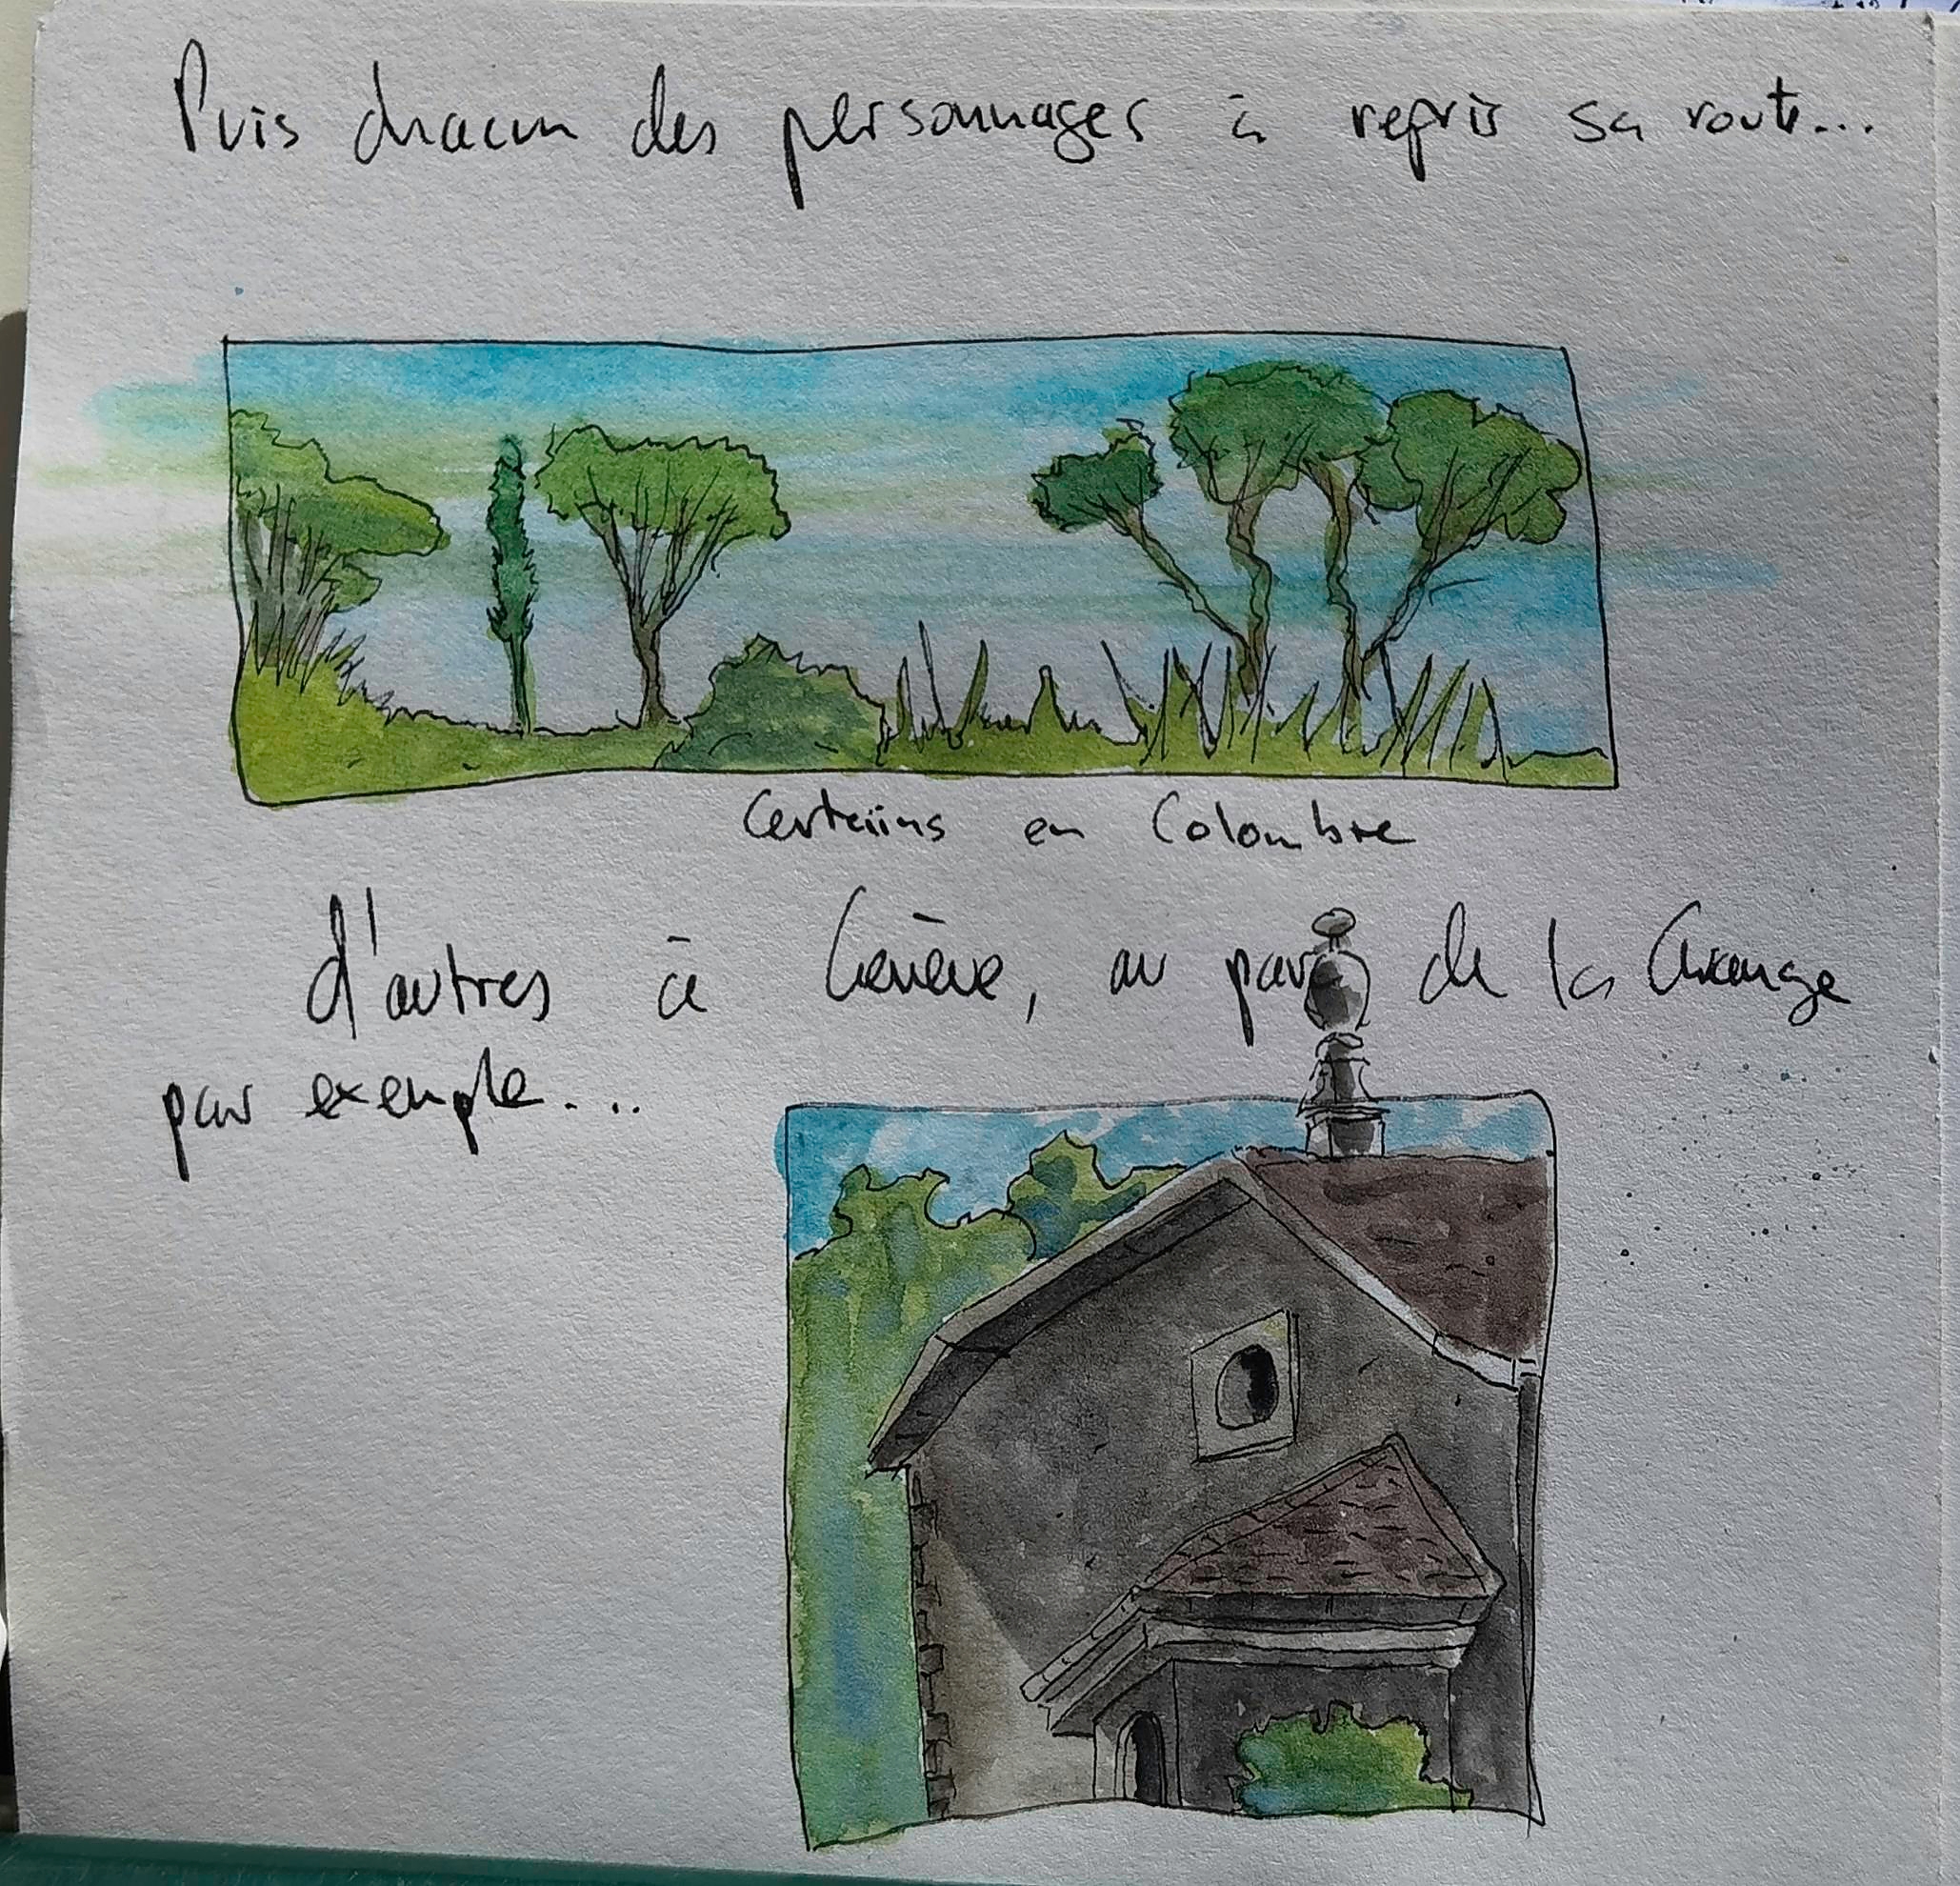 Puis chacun des personnages à repris sa route...
Certains en Colombie
d'autres à Genève, au parc de la Grange
par exemple...